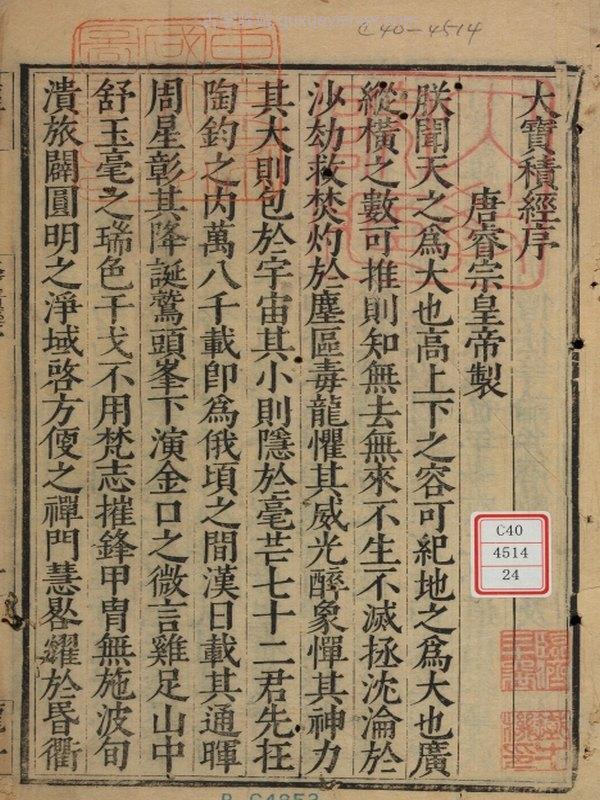 C40-4514
大寶積經序
唐睿宗皇帝製
朕聞天之爲大也高上下之容可紀地之爲大也廣
縱橫之數可推則知無去無來不生不滅拯沈淪於
沙劫救焚灼於塵區毒龍懼其威光醉象憚其神力
其大則包於宇宙其小則隱於毫芒七十二君先在
陶鈞之内萬八千載卽爲俄頃之間漢日載其通暉
周星彰其降誕鷲頭峯下演金口之微言雞足山中
舒玉毫之瑞色干戈不用梵志摧鋒甲冑無施波旬
潰旅闢圓明之淨域啓方便之禪門慧炬耀於昏衢
C40
4514
24